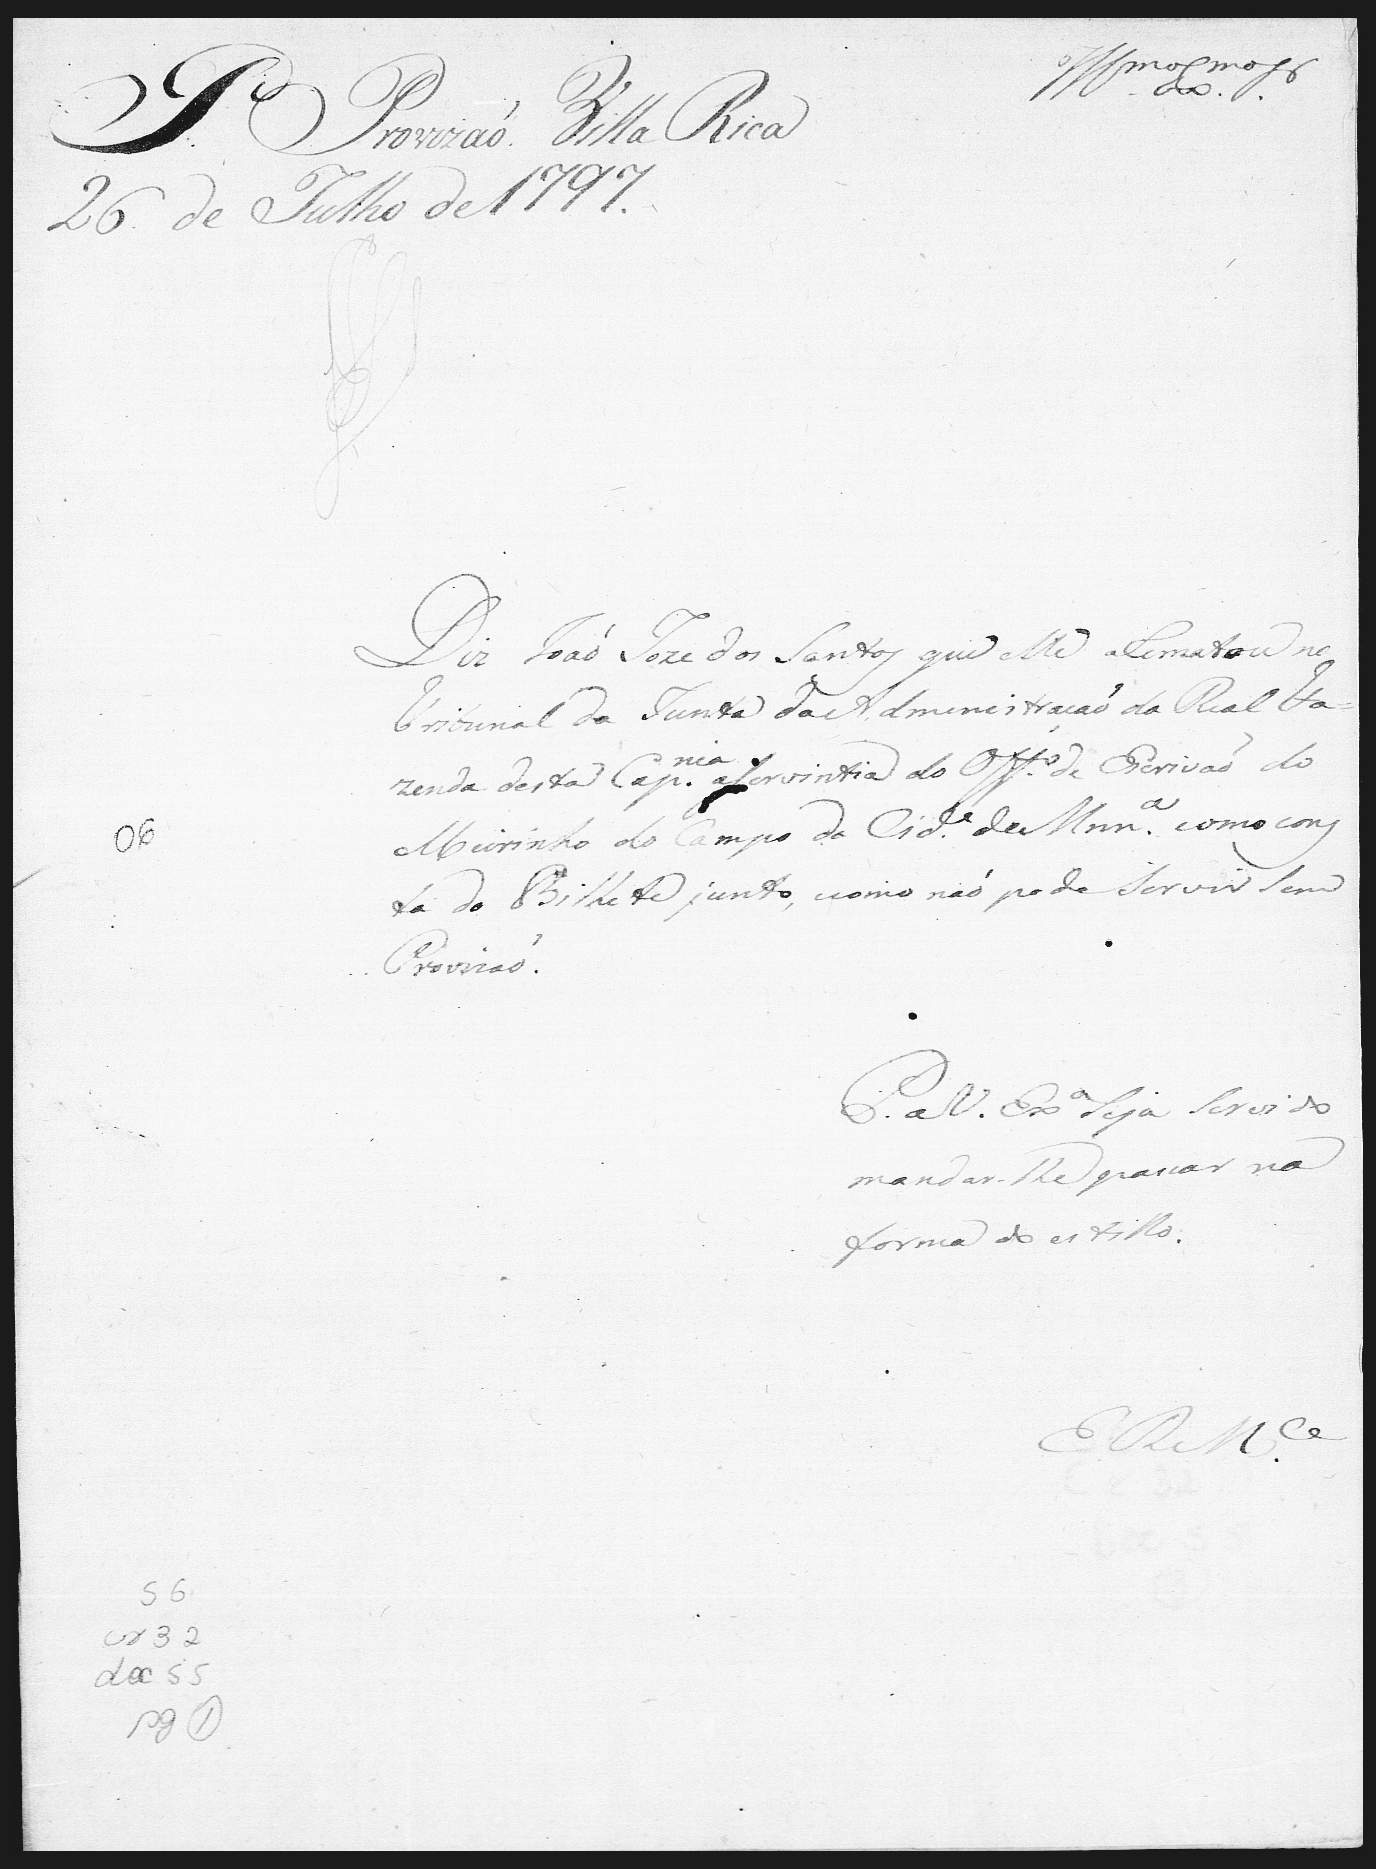 Ill.mo Ex.mo Sr.
P. Provizaõ. Villa Rica
26 de Julho de 1797.
Diz Joaõ Joze dos Santos que elle aRematou no
Tribunal da Junta da Admenistraçaõ da Real Fa=
zenda desta Cap.nia aServintia do Off.o de Escrivaõ do
Meirinho do Campo da Cid.e de Mnn.a como cons
ta do Bilhete junto, como naõ pode Servir Sem
Provizaõ.
06
P. a V. Ex.a Seja Servido
mandar-lhe passar na
forma do estillo.
E. R. M.ce
56
cx 32
doc 55
pg 1